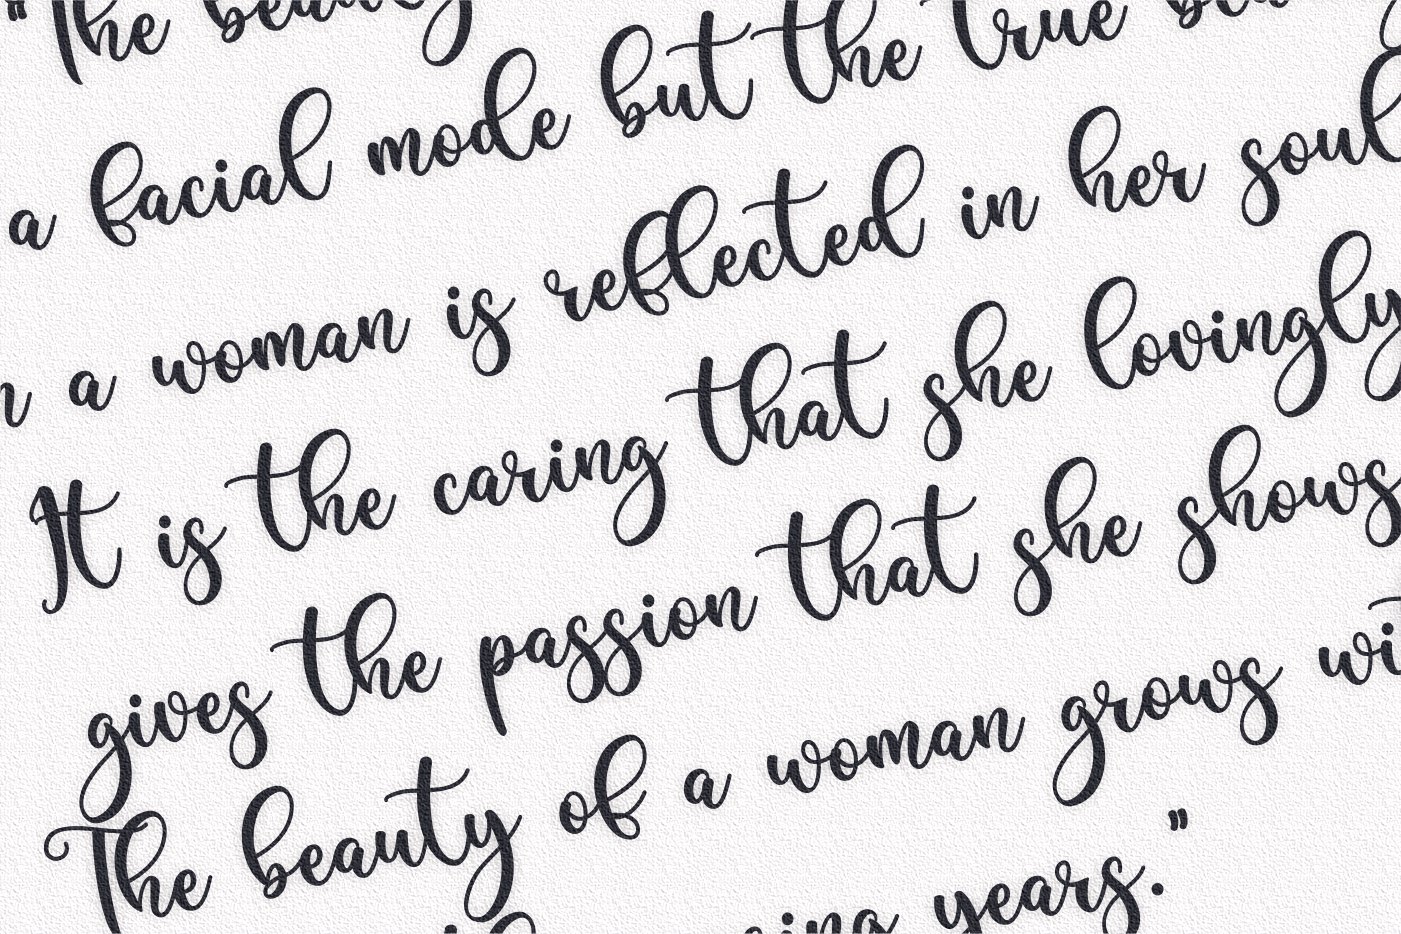 "The beauty
a facial mode but the true
a woman is reflected in her soul
It is the caring that she lovingly
gives the passion that she shows
The beauty of a woman grows
years."